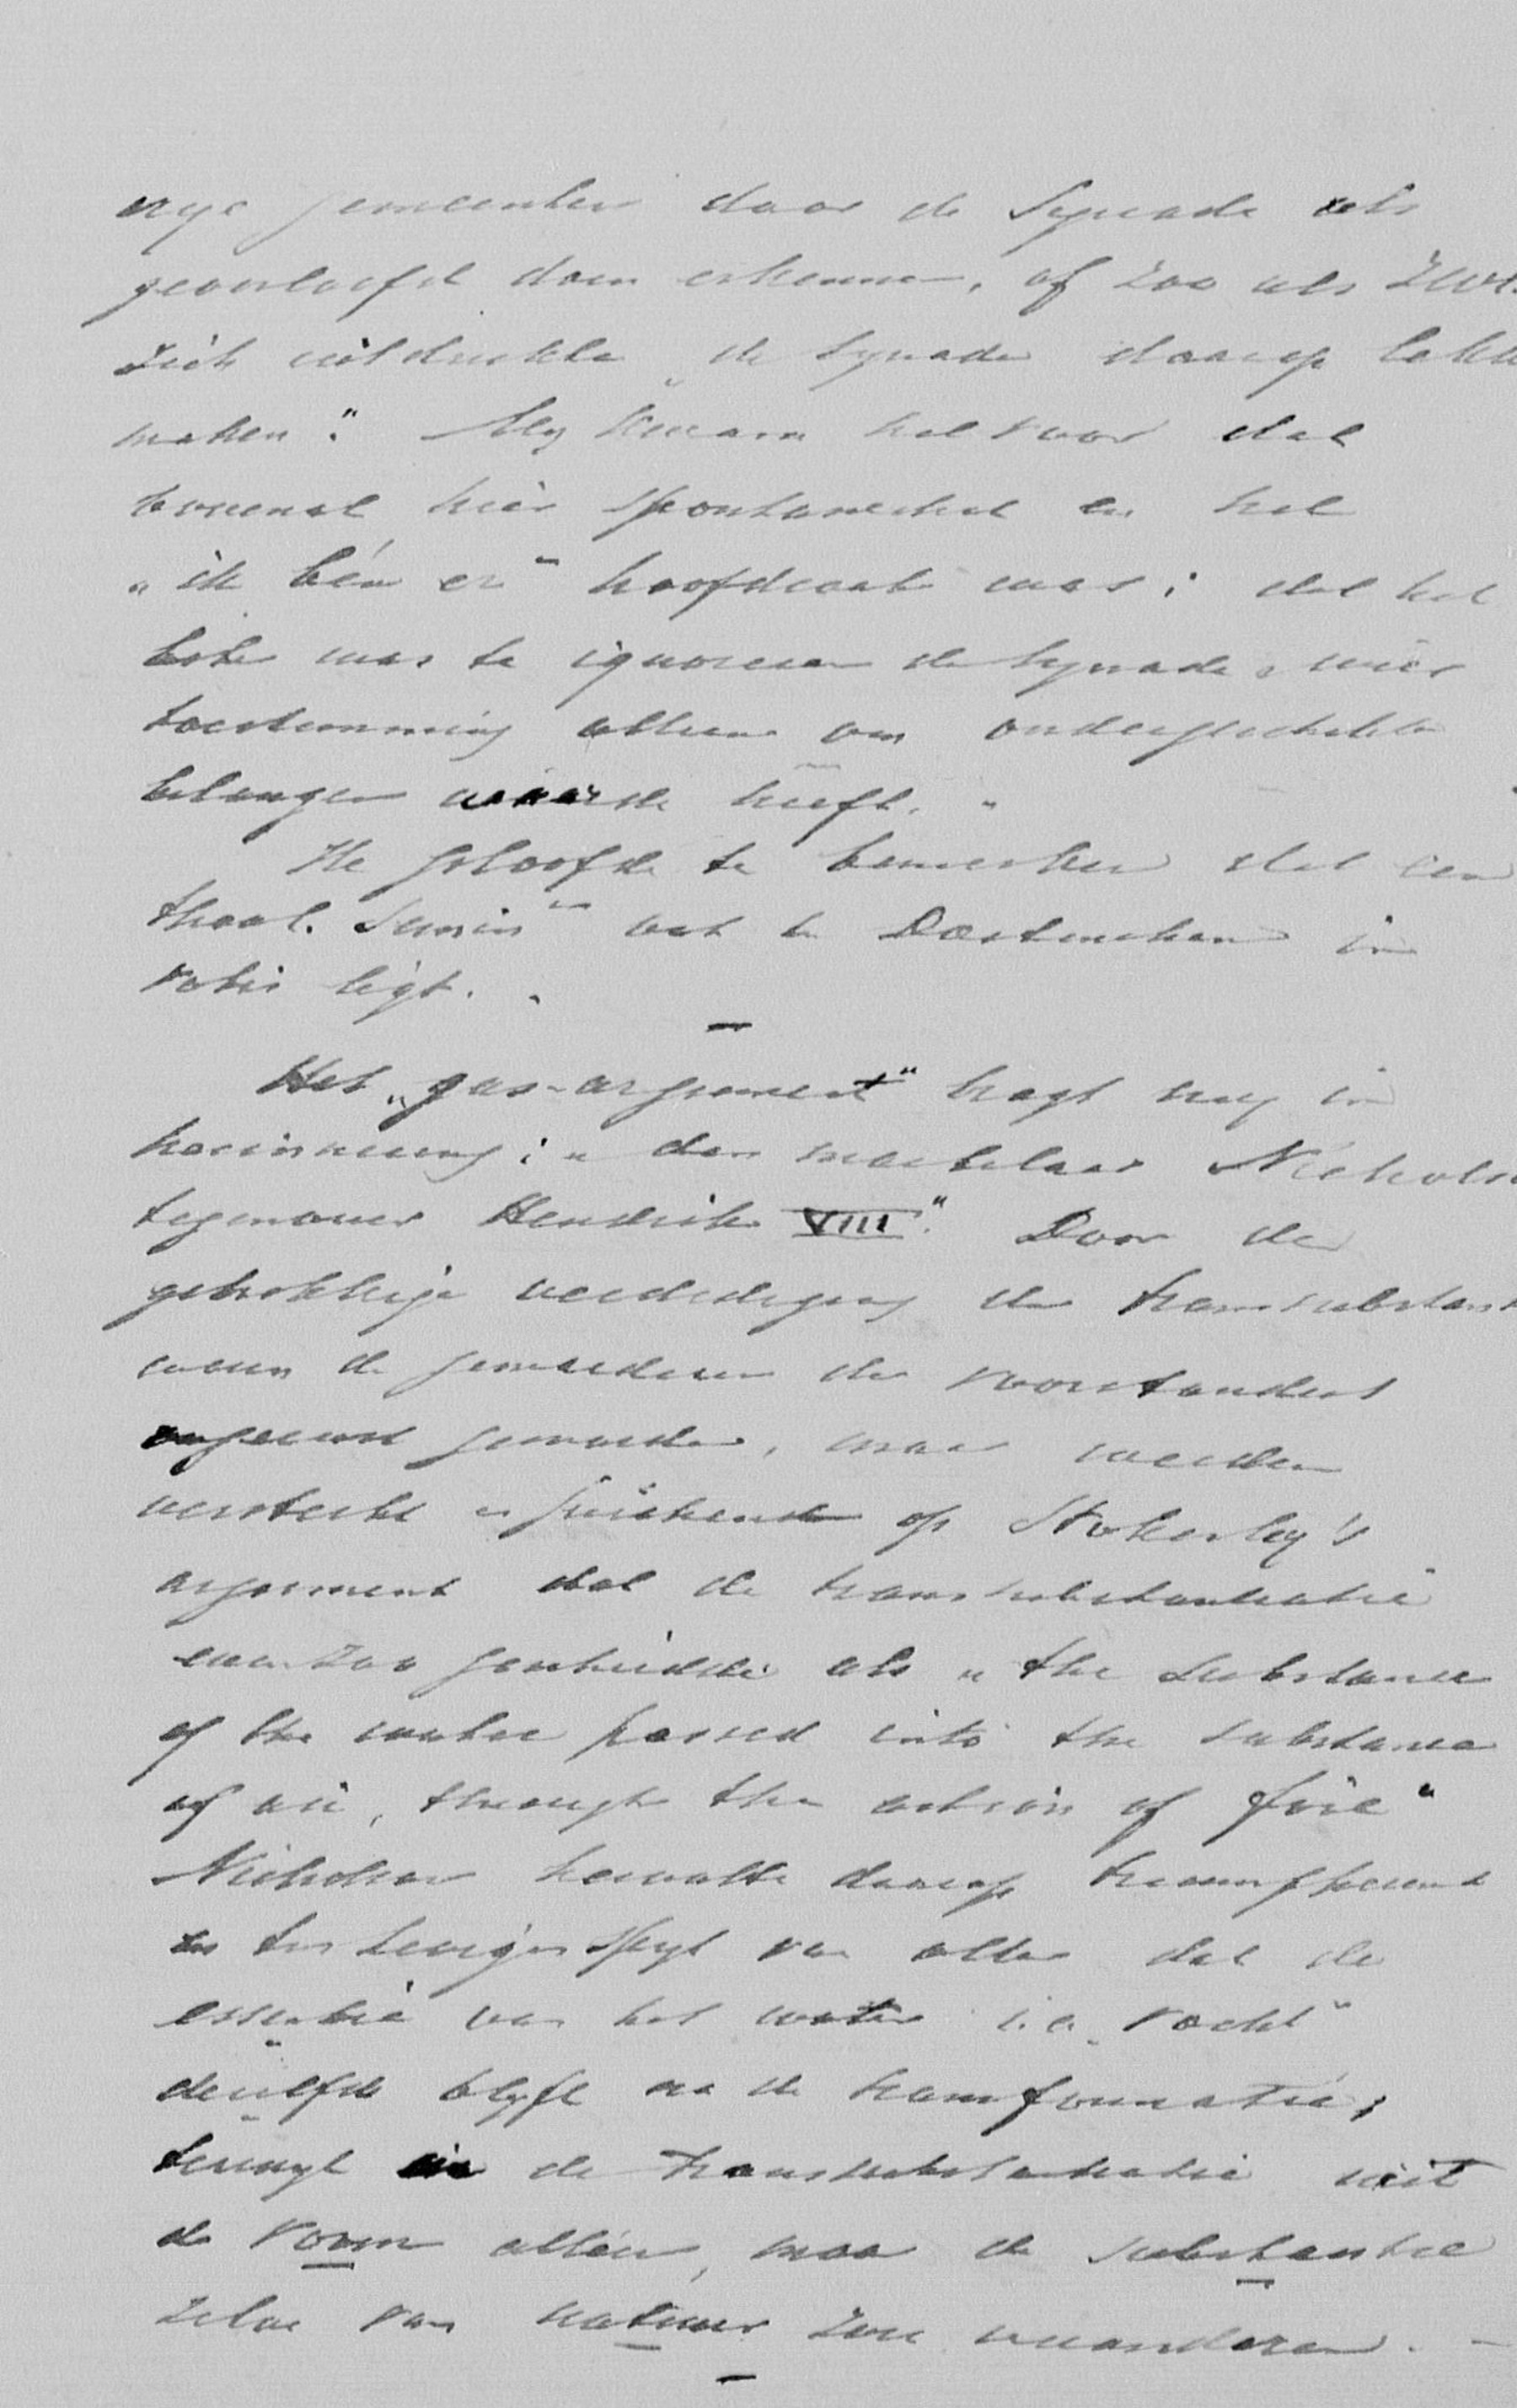 vrije gemeenten door de Synode als
geoorloofd doen erkennen, of zoo als ZWE.
zich uitdrukte de Synode daarop
maken." My kwam het voor dat
bovenal hier spontaneiteit en het
„ik bén er" hoofdzaak was; dat het
beter was te ignoreeren de Synode, wier
toestemming alleen van ondergeschikte
belangen waarde heeft.
Ik geloofde te bemerken dat een
theol. Semin wat te Doetinchem in
votis ligt.
Het „gas-argument" bragt my in
herinnering: „den martelaar Nicholson
tegenover Hendrik VIII". Door de
gebrekkige verdediging der transsubstant
waren de gemoederen der voorstanders
geworden, maar werden
versterkt en juichende op Stokesley's
argument dat de transsubstantiatie
even zoo geschiedde als „the substance
of the water passed into the substance
of air, through the action of fire"
Nicholson hervatte daarop triumpherend
en ten hevigen spyt van allen dat de
essentie van het water i.e. „vocht"
dezelfde blyft na de transformatie,
terwyl in de transsubstantiatie niet
de vorm alléén, maar de substantie
zelve van natuur zou veranderen. –